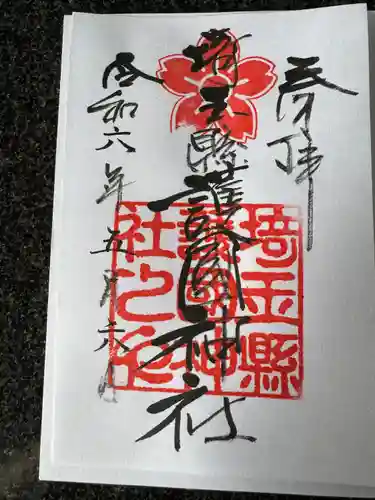 奉拝
埼玉縣護國神社
埼玉縣
護國神
社之印
令和六年五月六日